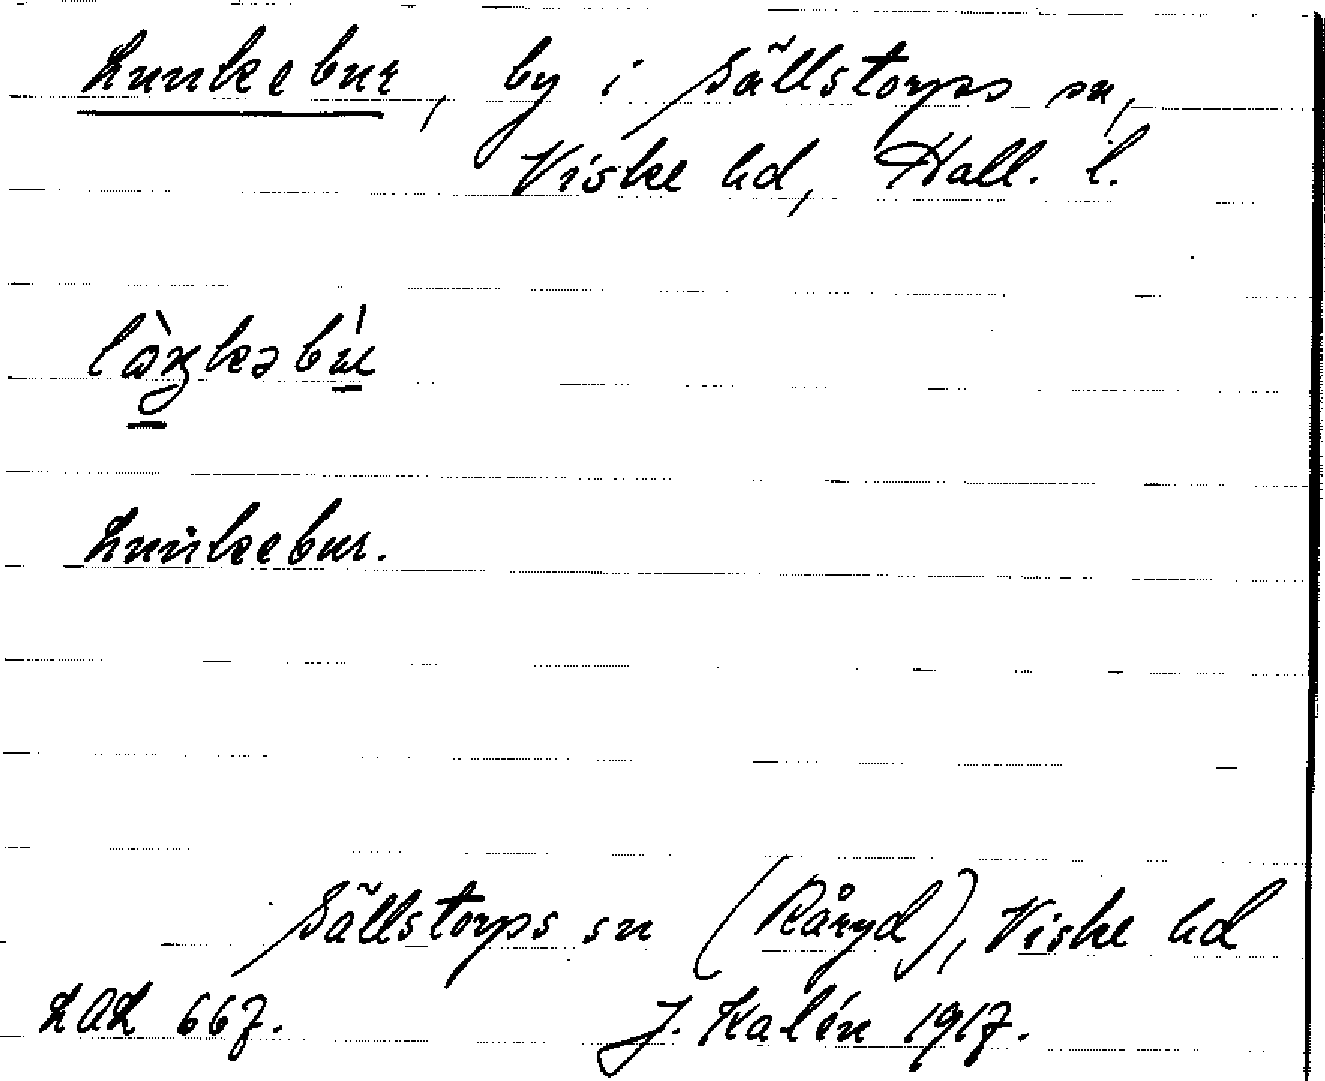 Lunkebur, by i Sällstorps sn,
Viske hd, Hall. l.
Lunkebur.
Sällstorps sn (Råryd), Viske hd
LAL 667. J. Kalén 1917.